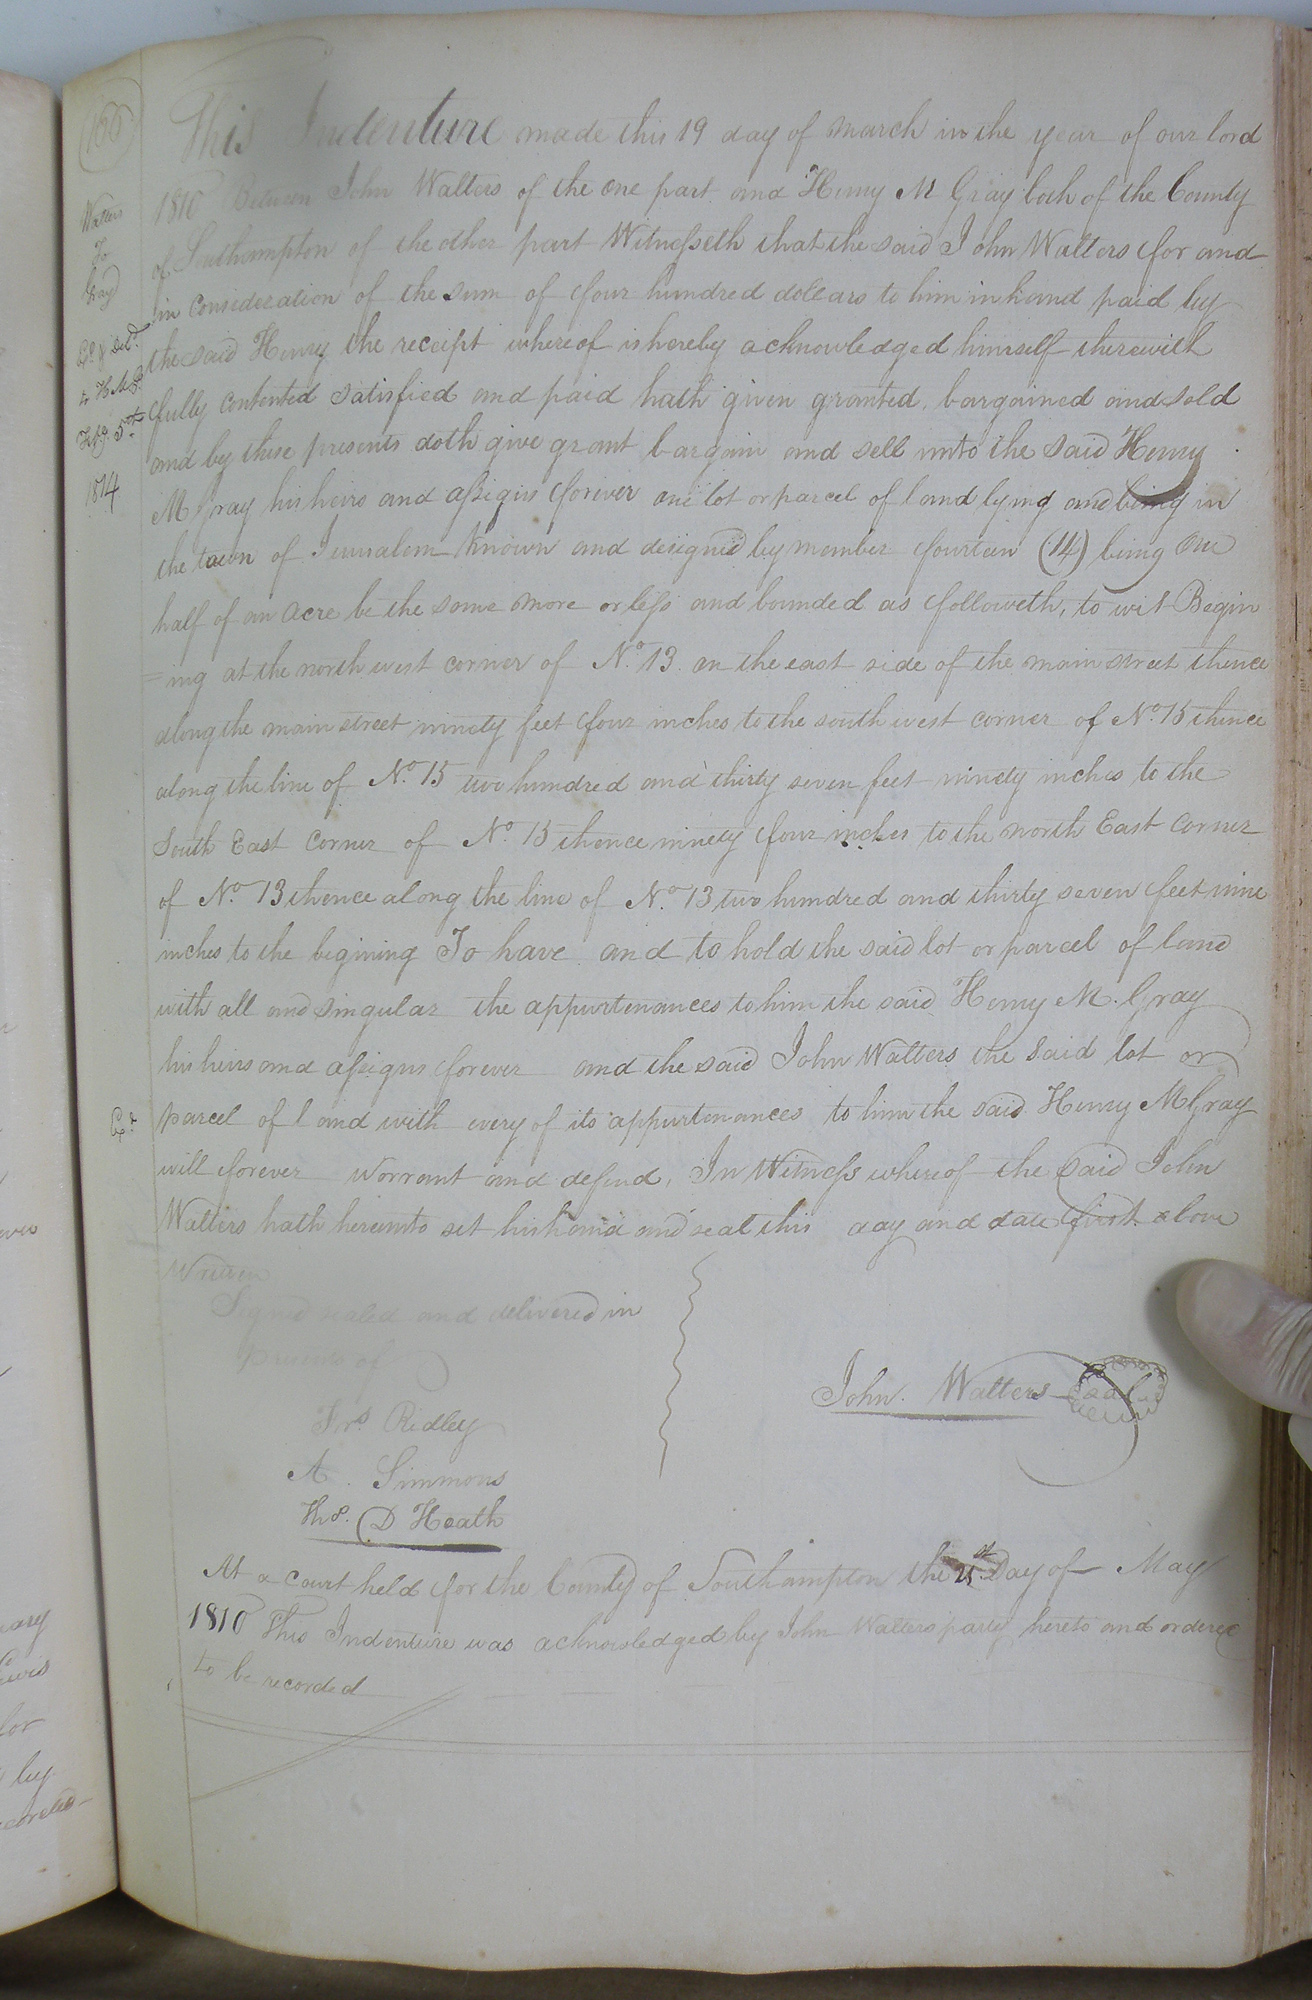 Walters
To
Gray
Ex.d & Del.d
to H M G
Feby 5th
1814
This Indenture made this 19 day of march in the year of our lord
1810 Between John Walters of the one part and Henry M Gray both of the County
of Southampton of the other part Witnesseth that the said John Walters for and
in consideration of the sum of four hundred dollars to him in hand paid by
the said Henry the receipt whereof is hereby acknowledged himself therewith
fully contented satisfied and paid hath given granted bargained and sold
and by these presents doth give grant bargain and sell unto the said Henry
M Gray his heirs and assigns forever one lot or parcel of land lying and being in
the town of Jerusalem known and designed by member fourteen (14) being One
half of an acre be the same more or less and bounded as followeth, to wit Begin
=ing at the north west corner of No. 13 on the east side of the main street thence
along the main street ninety feet four inches to the south west corner of No. 15 thence
along the line of No. 15 two hundred and thirty seven feet ninety inches to the
South East corner of No. 15 thence ninety four inches to the north East corner
of No. 13 thence along the line of No. 13 two hundred and thirty seven feet nine
inches to the begining To have and to hold the said lot or parcel of land
with all and singular the appurtenances to him the said Henry M. Gray
his heirs and assigns forever and the said John Walters the said lot or
Ex.r
parcel of land with every of its appurtenances to him the said Henry M Gray
will forever warrant and defend, In Witness whereof the said John
Walters hath hereunto set his hand and seal this day and date first above
Written
Signed sealed and delivered in
presents of
John Walters Seal
Frs. Ridley
A. Simmons
Ths. D Heath
At a court held for the County of Southampton the 21st Day of May
1810 This Indenture was acknowledged by John Walters party hereto and ordered
to be recorded